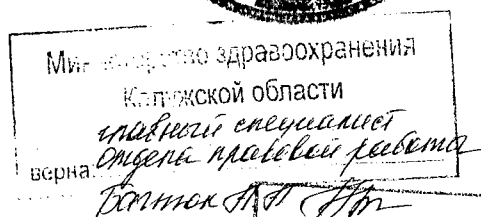 Министерство здравоохранения
Калужской области
главный специалист
верна: отдела правовой работы